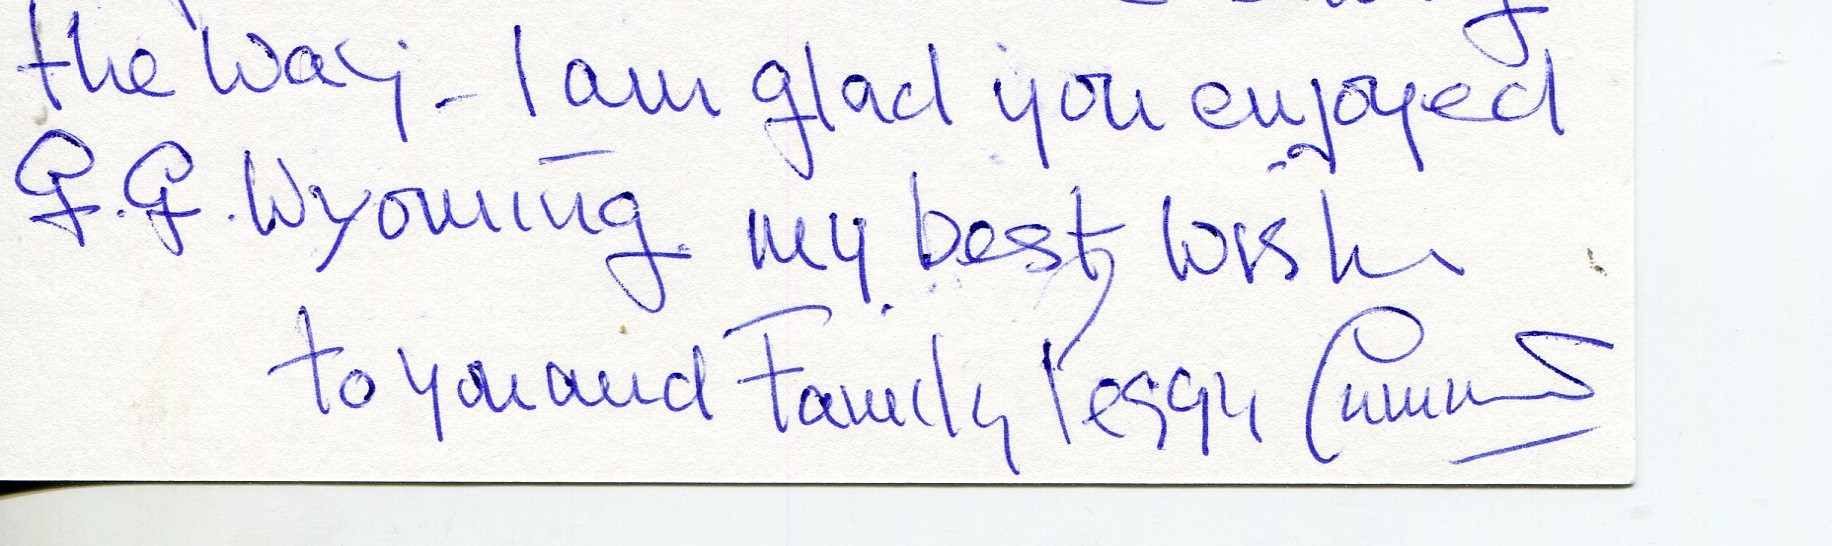 the way - I am glad you enjoyed
G.G. Wyoming. my best wishes
to you and Family Peggy Cummins